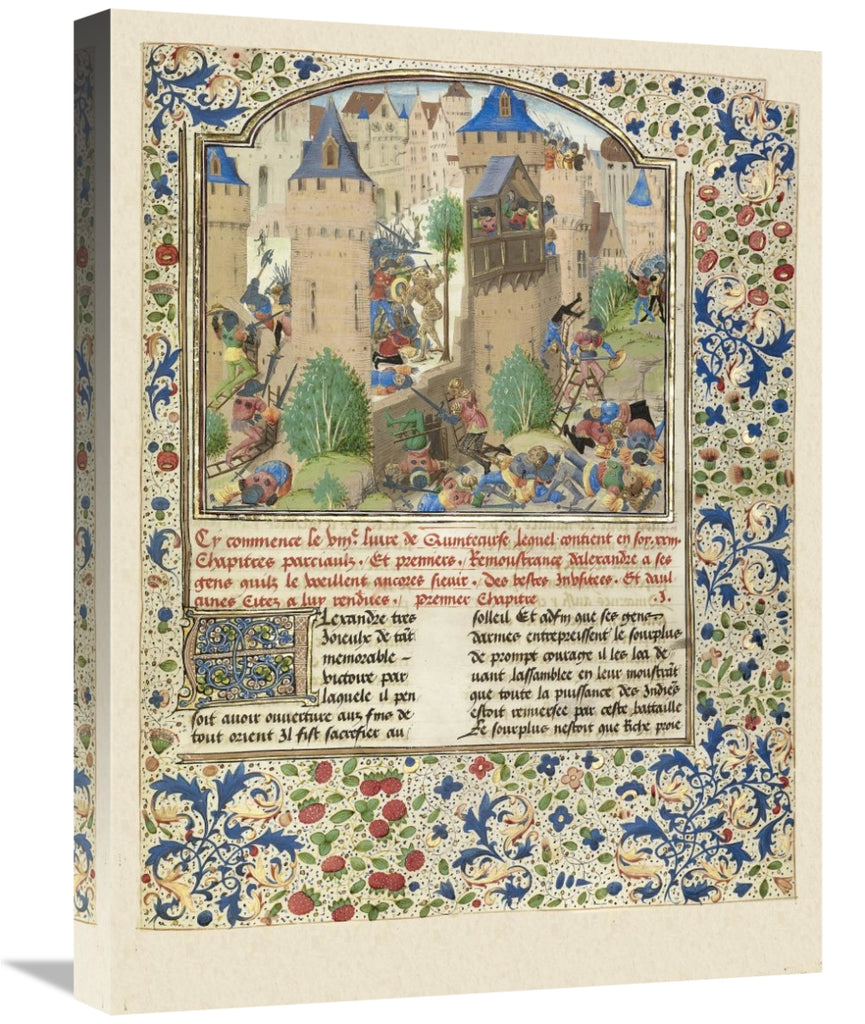 Cy commence le viiie liure de Quintecurse lequel contient en soy xxiii
Chapitres parciaulx / Et premiers / Remonstrance dalexandre a ses
gens quilz le veillent ancores sieuir / Des bestes Indvisees / Et daul
cunes Citez a luy rendues / Premier Chapitre .j.
Alexandre tres
Joieulx de tant
memorable
victoire par
laquele il pen
soit auoir ouuerture aux fins de
tout orient Il fist sacrefier au
solleil Et adfin que ses gens
darmes entrepreissent le sourplus
de prompt courage il les loa de
uant lassamblee en leur monstrant
que toute la puissance des Indies
estoit renuersee par ceste bataille
Le sourplus nestoit que Riche proie